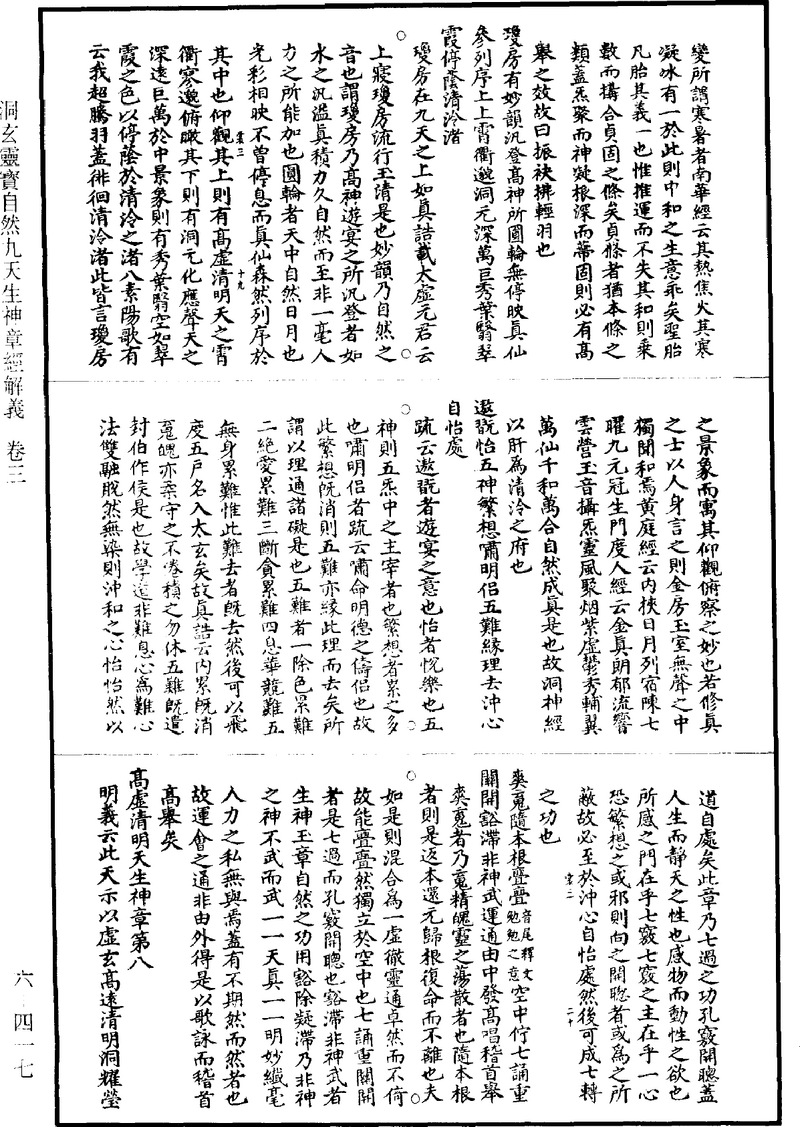 洞玄靈寶自然九天生神章經解義　卷三
六—四一七
變所謂寒暑者南華經云其熱焦火其寒
凝冰有一於此則中和之生意乖矣聖胎
凡胎其義一也惟推運而不失其和則乗
數而擣合貞固之條矣貞條者猶本條之
類蓋炁聚而神凝根深而蔕固則必有高
舉之效故曰振袂拂輕羽也
瓊房有妙韻汎登高神所圓輪無停映真仙
參列序上上霄衢邈洞元深萬巨秀葉翳翠
霞停蔭清泠渚
瓊房在九天之上如真誥載太虛元君云
上寢瓊房流行玉清是也妙韻乃自然之
音也謂瓊房乃高神遊宴之所汎登者如
水之汎溢真積力久自然而至非一毫人
力之所能加也圓輪者天中自然日月也
光彩相映不曾停息而真仙森然列序於
其中也仰觀其上則有高虛清明天之霄
衢寥邈俯瞰其下則有洞元化應聲天之
深遠巨萬於中景象則有秀葉翳空如翠
霞之色以停陰於清泠之渚八素陽歌有
云我超騰羽蓋徘徊清泠渚此皆言瓊房
之景象而寓其仰觀俯察之妙也若修真
之士以人身言之則金房玉室無聲之中
獨聞和焉黃庭經云內挾日月列宿陳七
曜九元冠生門度人經云金真朗郁流響
雲營玉音攝炁靈風聚烟紫虛鬱秀輔翼
萬仙千和萬合自然成真是也故洞神經
以肝為清泠之府也
遨翫怡五神繁想嘯明侶五難緣理去沖心
自怡處
疏云遨翫者遊宴之意也怡者悅樂也五
神則五炁中之主宰者也繁想者累之多
也嘯明侶者疏云嘯命明德之儔侶也故
此繁想既消則五難亦緣此理而去矣所
謂以理通諸礙是也五難者一除色累難
二絕愛累難三斷貪累難四息華競難五
無身累難惟此難去者既去然後可以飛
度五戶名入太玄矣故真誥云內累既消
冤魄亦柔守之不倦積之勿休五難既遣
封伯作侯是也故學道非難息心為難心
法雙融脫然無染則沖和之心怡怡然以
道自處矣此章乃七過之功孔竅開聰蓋
人生而靜天之性也感物而動性之欲也
所感之門在乎七竅七竅之主在乎一心
恐繁想之或邪則向之開聰者或為之所
蔽故必至於沖心自怡處然後可成七轉
之功也
爽䰟隨本根亹亹音尾釋文勉勉之意空中佇七誦重
關開豁滯非神武運通由中發高唱稽首舉
爽䰟者乃䰟精魄靈之蕩散者也隨本根
者則是返本還元歸根復命而不離也夫
如是則混合為一虛徹靈通卓然而不倚
故能亹亹然獨立於空中也七誦重關開
者是七過而孔竅開聰也豁滯非神武者
生神玉章自然之功用豁除凝滯乃非神
之神不武而武一一天真一一明妙纖毫
人力之私無與焉蓋有不期然而然者也
故運會之通非由外得是以歌詠而稽首
高舉矣
高虛清明天生神章第八
明義云此天示以虛玄高遠清明洞耀瑩